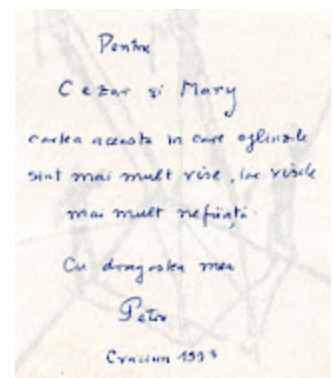 Pentru
Cezar și Mary
cartea aceasta în care oglinzile
sînt mai mult vise, iar visele
mai mult neființă.
Cu dragostea mea
Petru
Crăciun 1993